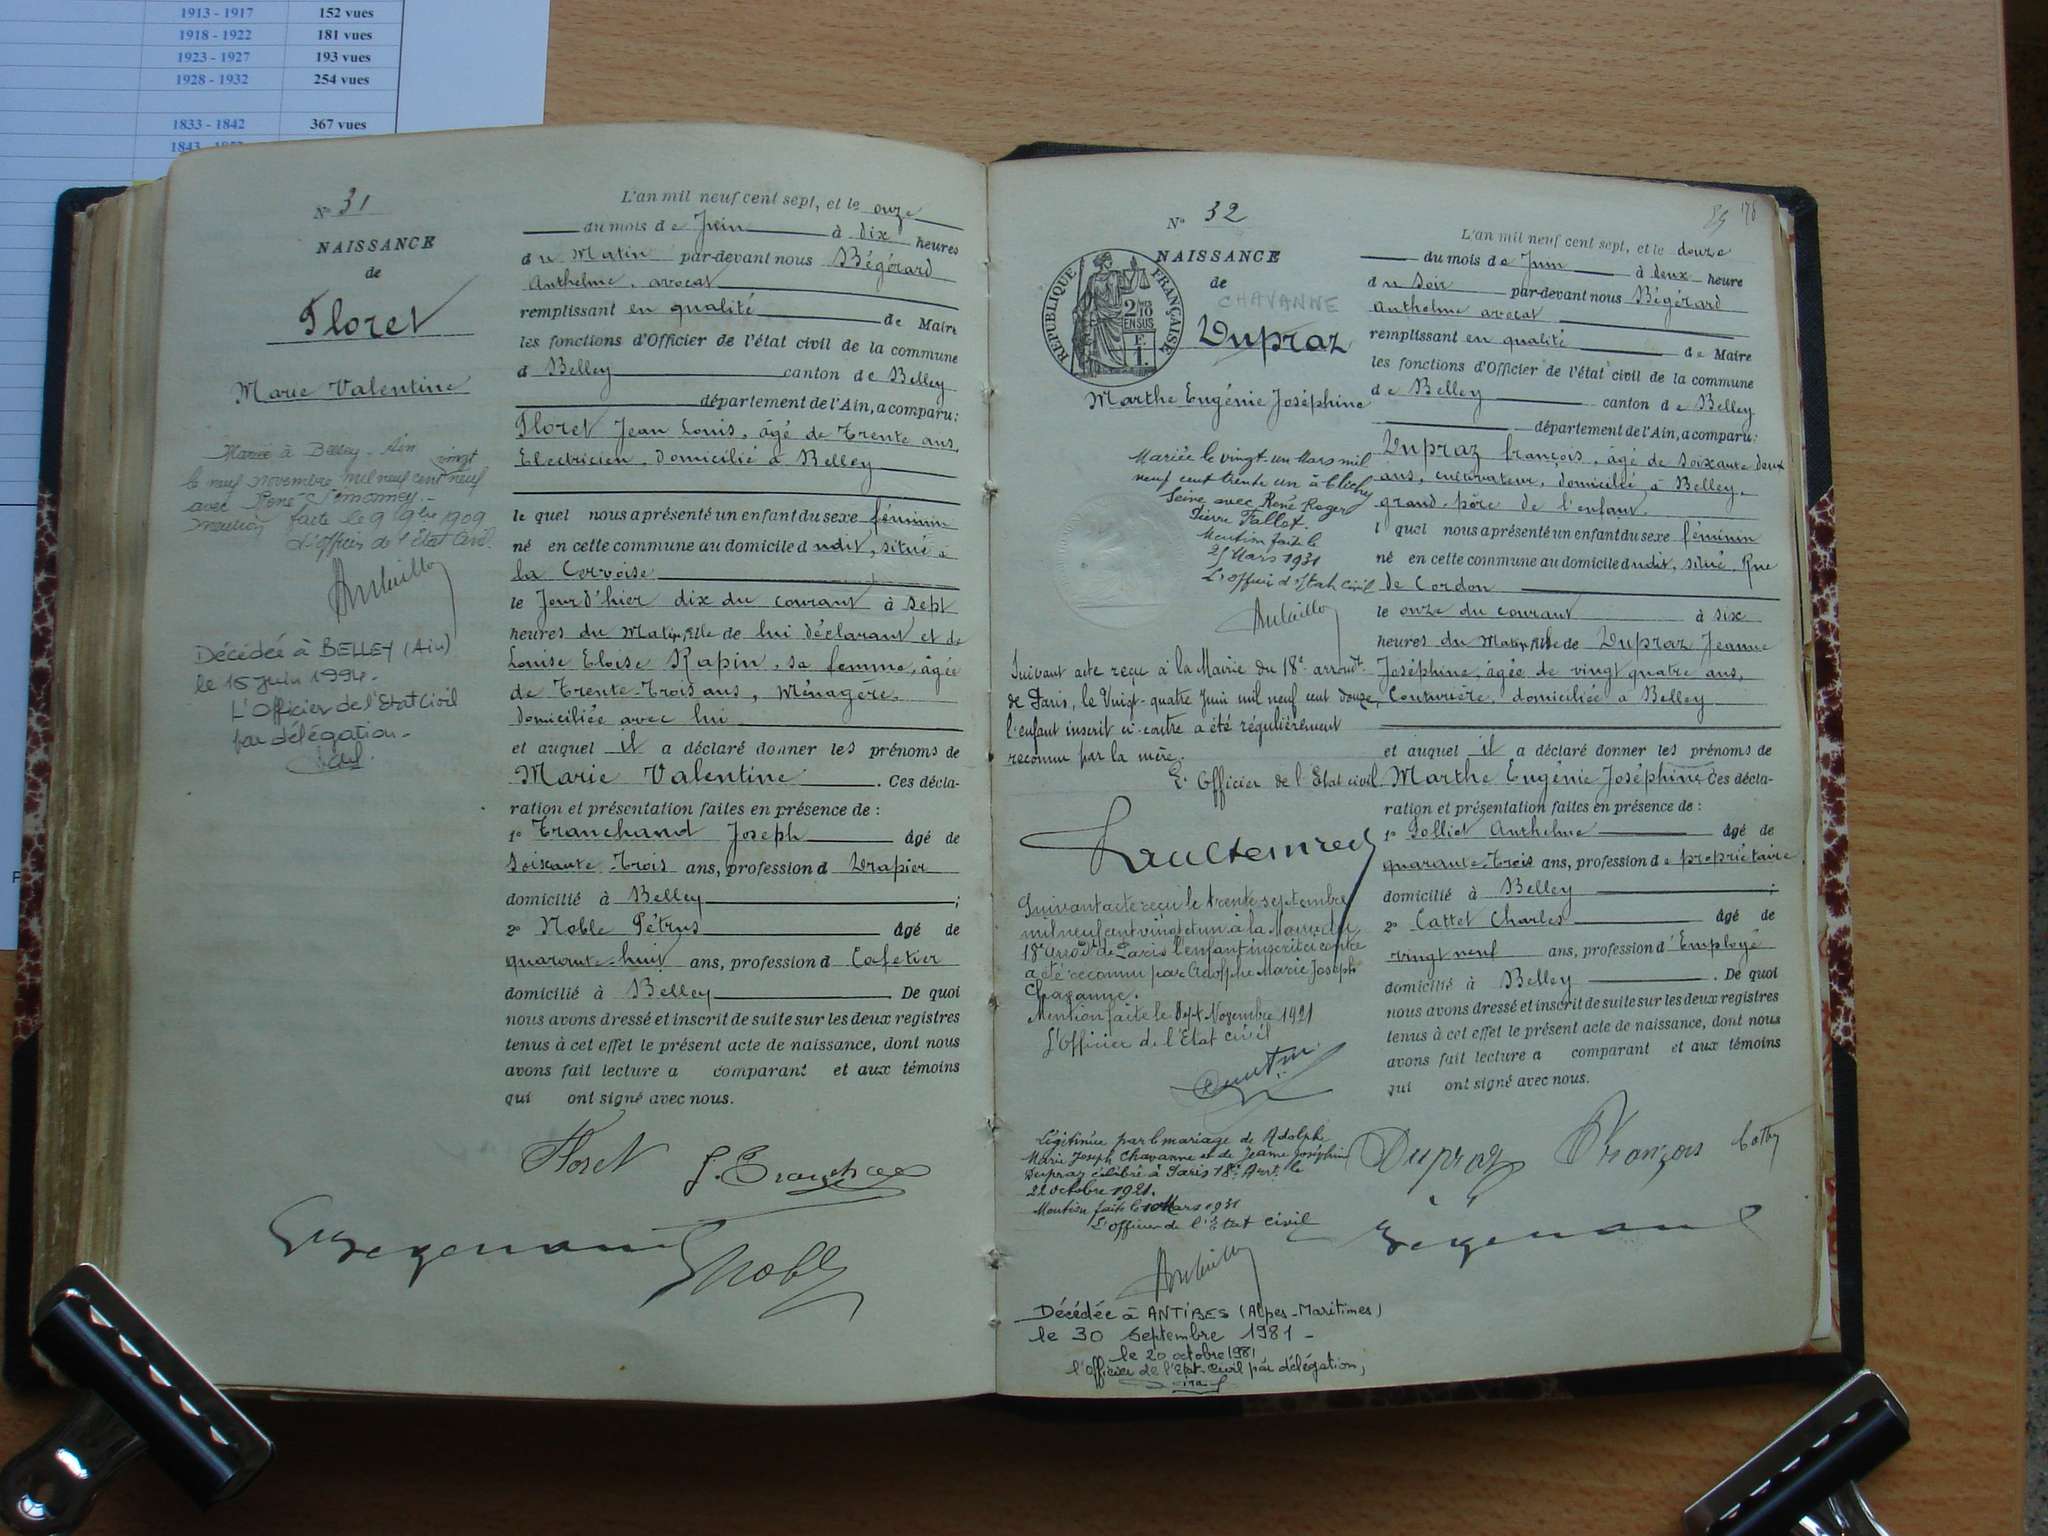 1913 - 1917 152 vues
1918 - 1922 181 vues
1923 - 1927 193 vues
1928 - 1932 254 vues
1833 - 1842 367 vues
N° 31
NAISSANCE
de
Floret
Marie Valentine
Mariée à Belley - Ain
le neuf novembre mil neuf cent vingt neuf
avec René
mention faite le 9
L'officier de l'état civil.
Décédée à BELLEY (Ain)
le 15 Juin 1994.
L'Officier de l'Etat Civil
par délégation.
L'an mil neuf cent sept, et le onze
du mois de Juin à dix heures
du Matin par-devant nous Bégérard
Anthelme, avocat
remplissant en qualité de Maire
les fonctions d'Officier de l'état civil de la commune
d Belley canton de Belley
département de l'Ain, a comparu:
Floret Jean Louis, âgé de trente ans,
Electricien, domicilié à Belley
le quel nous a présenté un enfant du sexe féminin
né en cette commune au domicile dudit, situé à
la Corvoise
le Jour d'hier dix du courant à sept
heures du Matin, fille de lui déclarant et de
Louise Eloise Rapin, sa femme, âgée
de trente-trois ans, Ménagère,
domiciliée avec lui
et auquel il a déclaré donner les prénoms de
Marie Valentine . Ces décla-
ration et présentation faites en présence de :
1° Tranchand Joseph âgé de
soixante-trois ans, profession d Drapier
domicilié à Belley ;
2° Noble Pétrus âgé de
quarante-huit ans, profession d Cafetier
domicilié à Belley . De quoi
nous avons dressé et inscrit de suite sur les deux registres
tenus à cet effet le présent acte de naissance, dont nous
avons fait lecture a comparant et aux témoins
qui ont signé avec nous.
Floret
Noble
N° 32
NAISSANCE
de
CHAVANNE
Dupraz
Marthe Eugénie Joséphine
REPUBLIQUE FRANÇAISE
2/10 EN SUS
F. 1.
Mariée le vingt-un Mars mil
neuf cent trente un à Clichy
Seine avec René Roger
Pierre Fallot.
Mention faite le
25 Mars 1931
L'officier d'Etat civil
Suivant acte reçu à la Mairie du 18e arrondt
de Paris, le Vingt-quatre Juin mil neuf cent douze,
l'enfant inscrit ci-contre a été régulièrement
reconnu par la mère.
L'Officier de l'Etat civil
Suivant acte reçu le trente septembre
mil neuf cent vingt et un à la Mairie du
18e arrodt de Paris l'enfant inscrit ci contre
a été reconnu par Adolphe Marie Joseph
Chavanne.
Mention faite le Sept Novembre 1921
L'Officier de l'Etat civil
Légitimée par le mariage de Adolphe
Marie Joseph Chavanne et de Jeanne Joséphine
Dupraz célébré à Paris 18e Arrt. le
22 octobre 1921.
Mention faite le 10 Mars 1931
L'officier de l'Etat civil
Décédée à ANTIBES (Alpes-Maritimes)
le 30 Septembre 1981 -
le 20 octobre 1981
l'Officier de l'Etat-Civil par délégation,
85 176
L'an mil neuf cent sept, et le douze
du mois de Juin à deux heure
du Soir par-devant nous Bégérard
Anthelme avocat
remplissant en qualité de Maire
les fonctions d'Officier de l'état civil de la commune
de Belley canton de Belley
département de l'Ain, a comparu:
Dupraz François, âgé de soixante deux
ans, cultivateur, domicilié à Belley,
grand-père de l'enfant.
l quel nous a présenté un enfant du sexe féminin
né en cette commune au domicile dudit, situé, Rue
de Cordon
le onze du courant à six
heures du Matin, fille de Dupraz Jeanne
Joséphine, âgée de vingt quatre ans,
Couturière, domiciliée à Belley
et auquel il a déclaré donner les prénoms de
Marthe Eugénie Joséphine. Ces décla-
ration et présentation faites en présence de :
1° Polliet Anthelme âgé de
quarante-trois ans, profession de propriétaire
domicilié à Belley ;
2° Cattet Charles âgé de
vingt neuf ans, profession d'Employé
domicilié à Belley . De quoi
nous avons dressé et inscrit de suite sur les deux registres
tenus à cet effet le présent acte de naissance, dont nous
avons fait lecture a comparant et aux témoins
qui ont signé avec nous.
Dupraz François